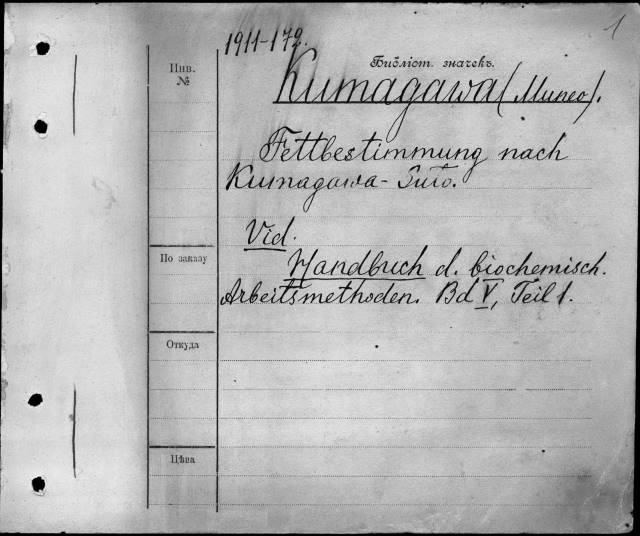 1
1911-172.
Инв.
№
Библіот. значекъ.
Kumagawa (Muneo).
Fettbestimmung nach
Kumagawa-Suto.
Vid.
По заказу
Handbuch d. biochemisch.
Arbeitsmethoden. Bd V, Teil 1.
Откуда
Цѣна